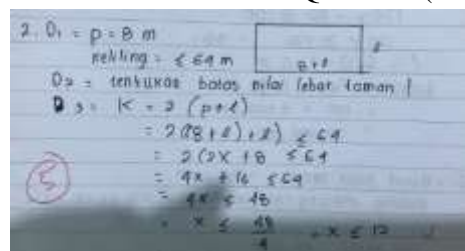 2. D1 = p = 8 m
keliling = ≤ 64 m
8 + l
l
D2 = tentukan batas nilai lebar taman !
D3 = K = 2 (p+l)
= 2((8+l)+l) ≤ 64
= 2(2x + 8 ≤ 64
= 4x + 16 ≤ 64
= 4x ≤ 48
= x ≤ 48/4 = x ≤ 12
5